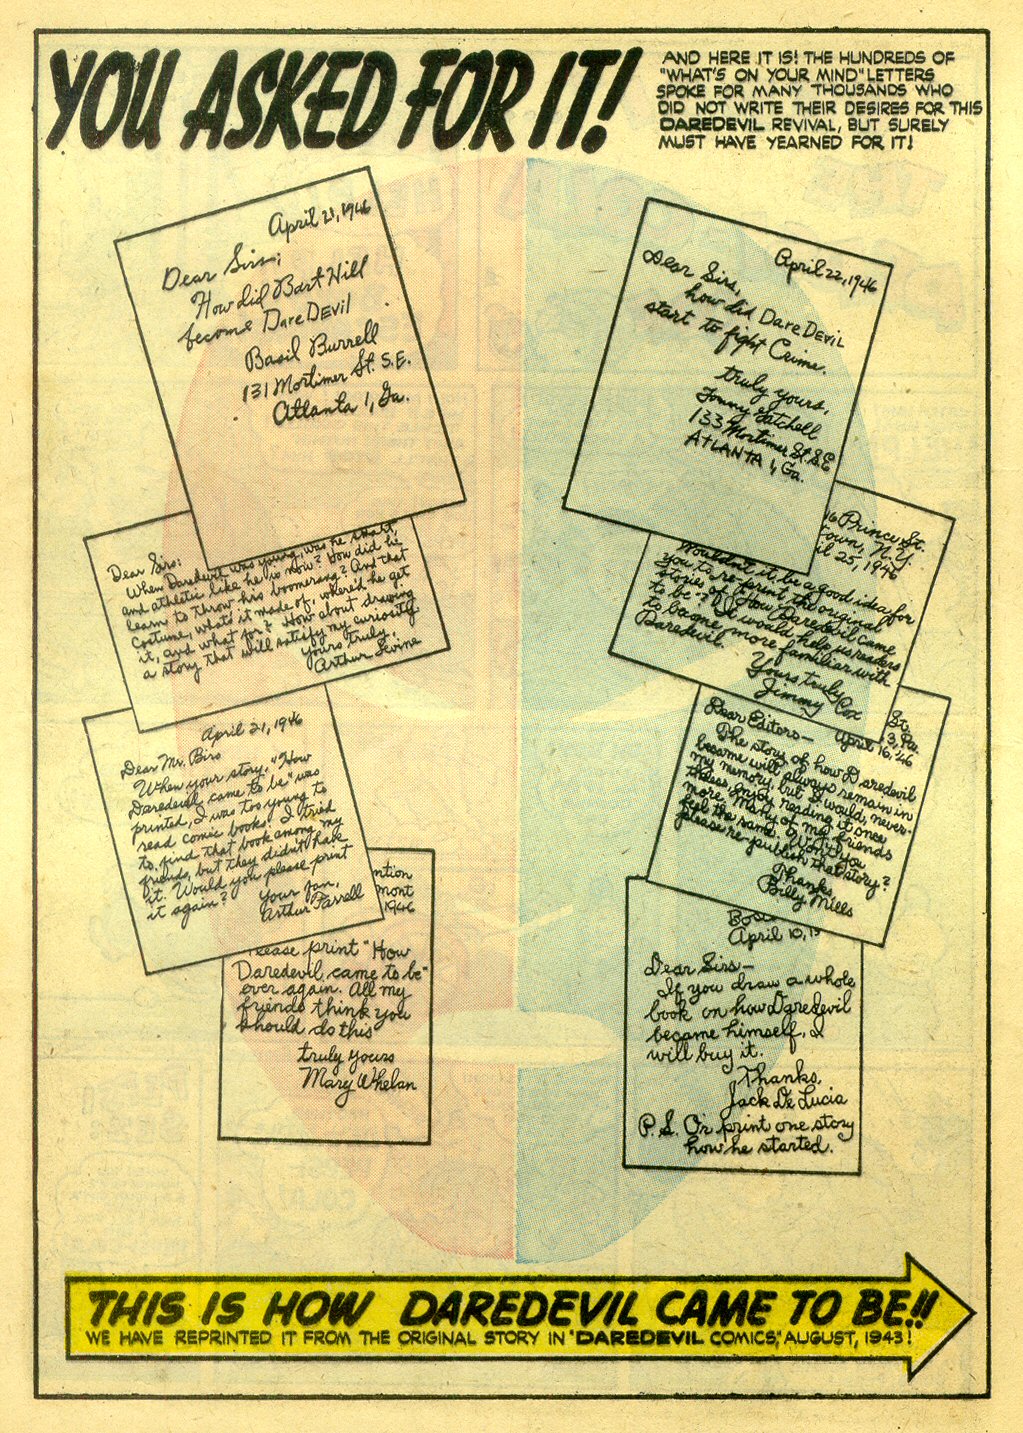 YOU ASKED FOR IT!
AND HERE IT IS! THE HUNDREDS OF
"WHAT'S ON YOUR MIND" LETTERS
SPOKE FOR MANY THOUSANDS WHO
DID NOT WRITE THEIR DESIRES FOR THIS
DAREDEVIL REVIVAL, BUT SURELY
MUST HAVE YEARNED FOR IT!
April 21, 1946
Dear Sirs;
How did Bart Hill
become DareDEVIL
Basil Burrell
131 Mortimer St. S.E.
Atlanta 1, Ga.
April 22, 1946
Dear Sirs,
how did DareDEVIL
start to fight Crime.
truly yours,
Tommy Gatchell
133 Mortimer St. S.E
ATLANTA 1, Ga.
Dear Sirs:
When Daredevil was young, was he smart,
and athletic like he is now? How did he
learn to throw his boomerang? And that
costume, what's it made of, where'd he get
it, and what for? How about drawing
a story that will satisfy my curiosity.
yours truly,
Arthur Levine
16 Prince St.
town, N.Y.
il 25, 1946
Wouldn't it be a good idea for
you to re-print the original
stories of "How Daredevil came
to be"? It would help us readers
to become more familiar with
Daredevil.
Yours truly
Jimmy Cox
April 21, 1946
Dear Mr. Biro
When your story, "How
Daredevil came to be" was
printed, I was too young to
read comic books. I tried
to find that book among my
friends, but they didn't have
it. Would you please print
it again?
Your fan,
Arthur Farrell
St.
3, Pa.
April 16, '46
Dear Editors—
The story of how Daredevil
became will always remain in
my memory, but I would, never-
theless, enjoy reading it once
more. Many of my friends
feel the same. Won't you
please re-publish that story?
Thanks,
Billy Mills
ntion
mont
1946
lease print "How
Daredevil came to be"
over again. All my
friends think you
should do this
truly yours
Mary Whelan
Bosto
April 10, 19
Dear Sirs—
If you draw a whole
book on how Daredevil
became himself, I
will buy it.
Thanks,
Jack De Lucia
P.S. Or print one story
how he started.
THIS IS HOW DAREDEVIL CAME TO BE!!
WE HAVE REPRINTED IT FROM THE ORIGINAL STORY IN "DAREDEVIL COMICS," AUGUST, 1943!